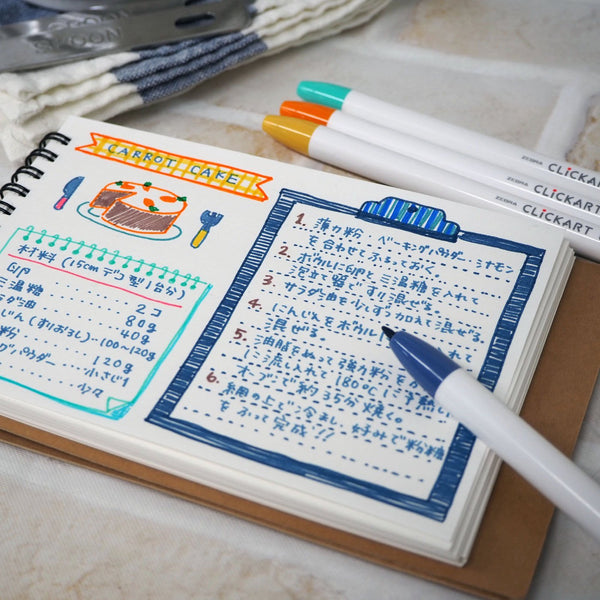 SPOON
CARROT CAKE
材料(15cmデコ型1台分)
卵 2コ
三温糖 80g
サラダ油 40g
にんじん(すりおろし) 100〜120g
粉 120g
グパウダー 小さじ1
少々
1. 薄力粉、ベーキングパウダー、シナモン
を合わせてふるっておく。
2. ボウルに卵と三温糖を入れて
泡立て器ですり混ぜる。
3. サラダ油を少しずつ加えて混ぜる。
4. にんじんをボウルに れて
混ぜる。
5. 油脂をぬって薄力粉を
に流し入れて180℃に予熱し
オーブンで約35分焼く。
6. 網の上で冷まし、好みで粉糖
をふって完成!!
ZEBRA CLiCKART
ZEBRA CLiCKART
ZEBRA CLiCKART